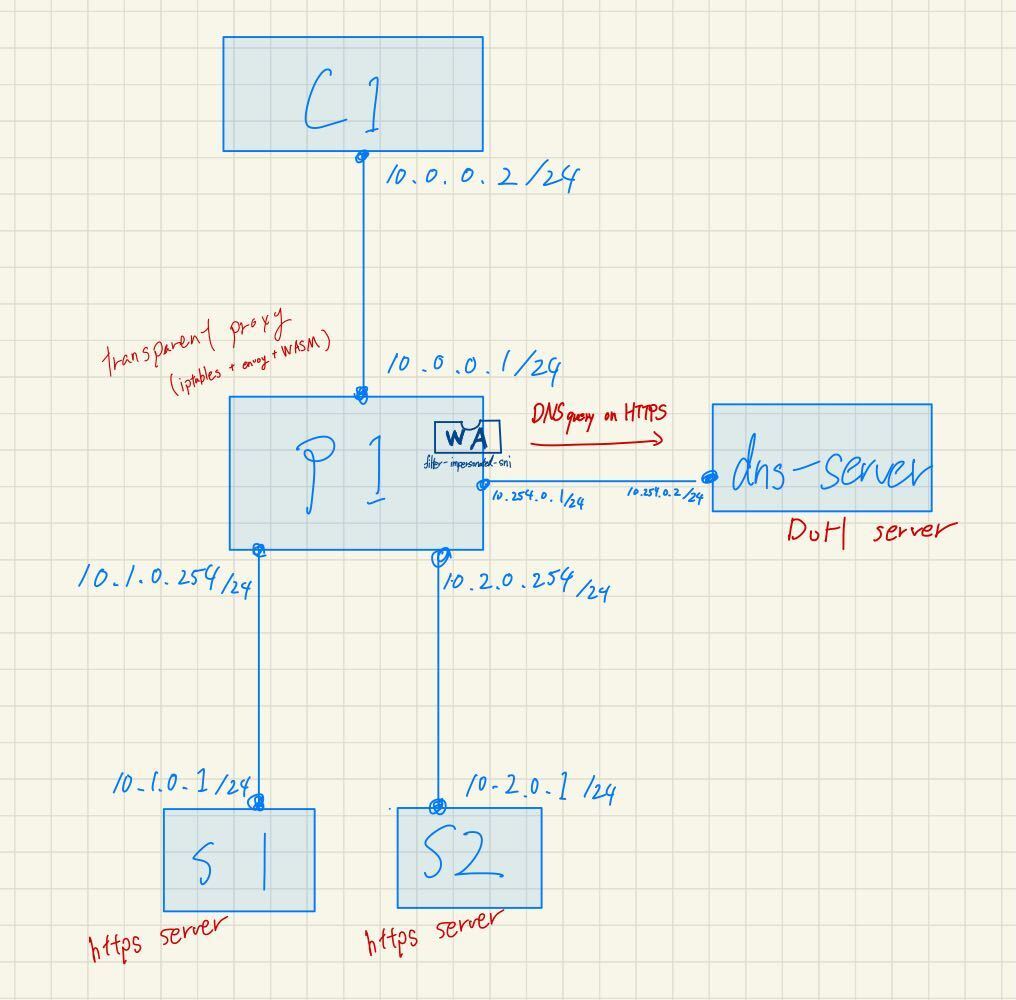 C1
10.0.0.2/24
transparent proxy
(iptables + envoy + WASM)
10.0.0.1/24
P1
WA
filter-impersonated-sni
DNS query on HTTPS
dns-server
10.254.0.1/24
10.254.0.2/24
DoH server
10.1.0.254/24
10.2.0.254/24
10.1.0.1/24
10.2.0.1/24
S1
S2
https server
https server